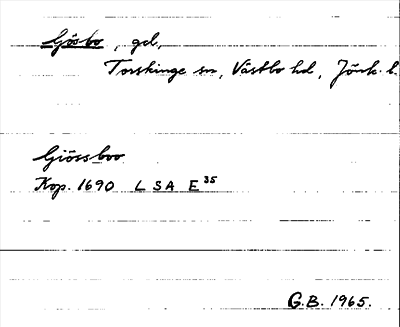 Gösbo, gd,
Torskinge sn, Västbo hd, Jönk. l.
Giössboo
Kop. 1690 LSA E³⁵
G.B. 1965.